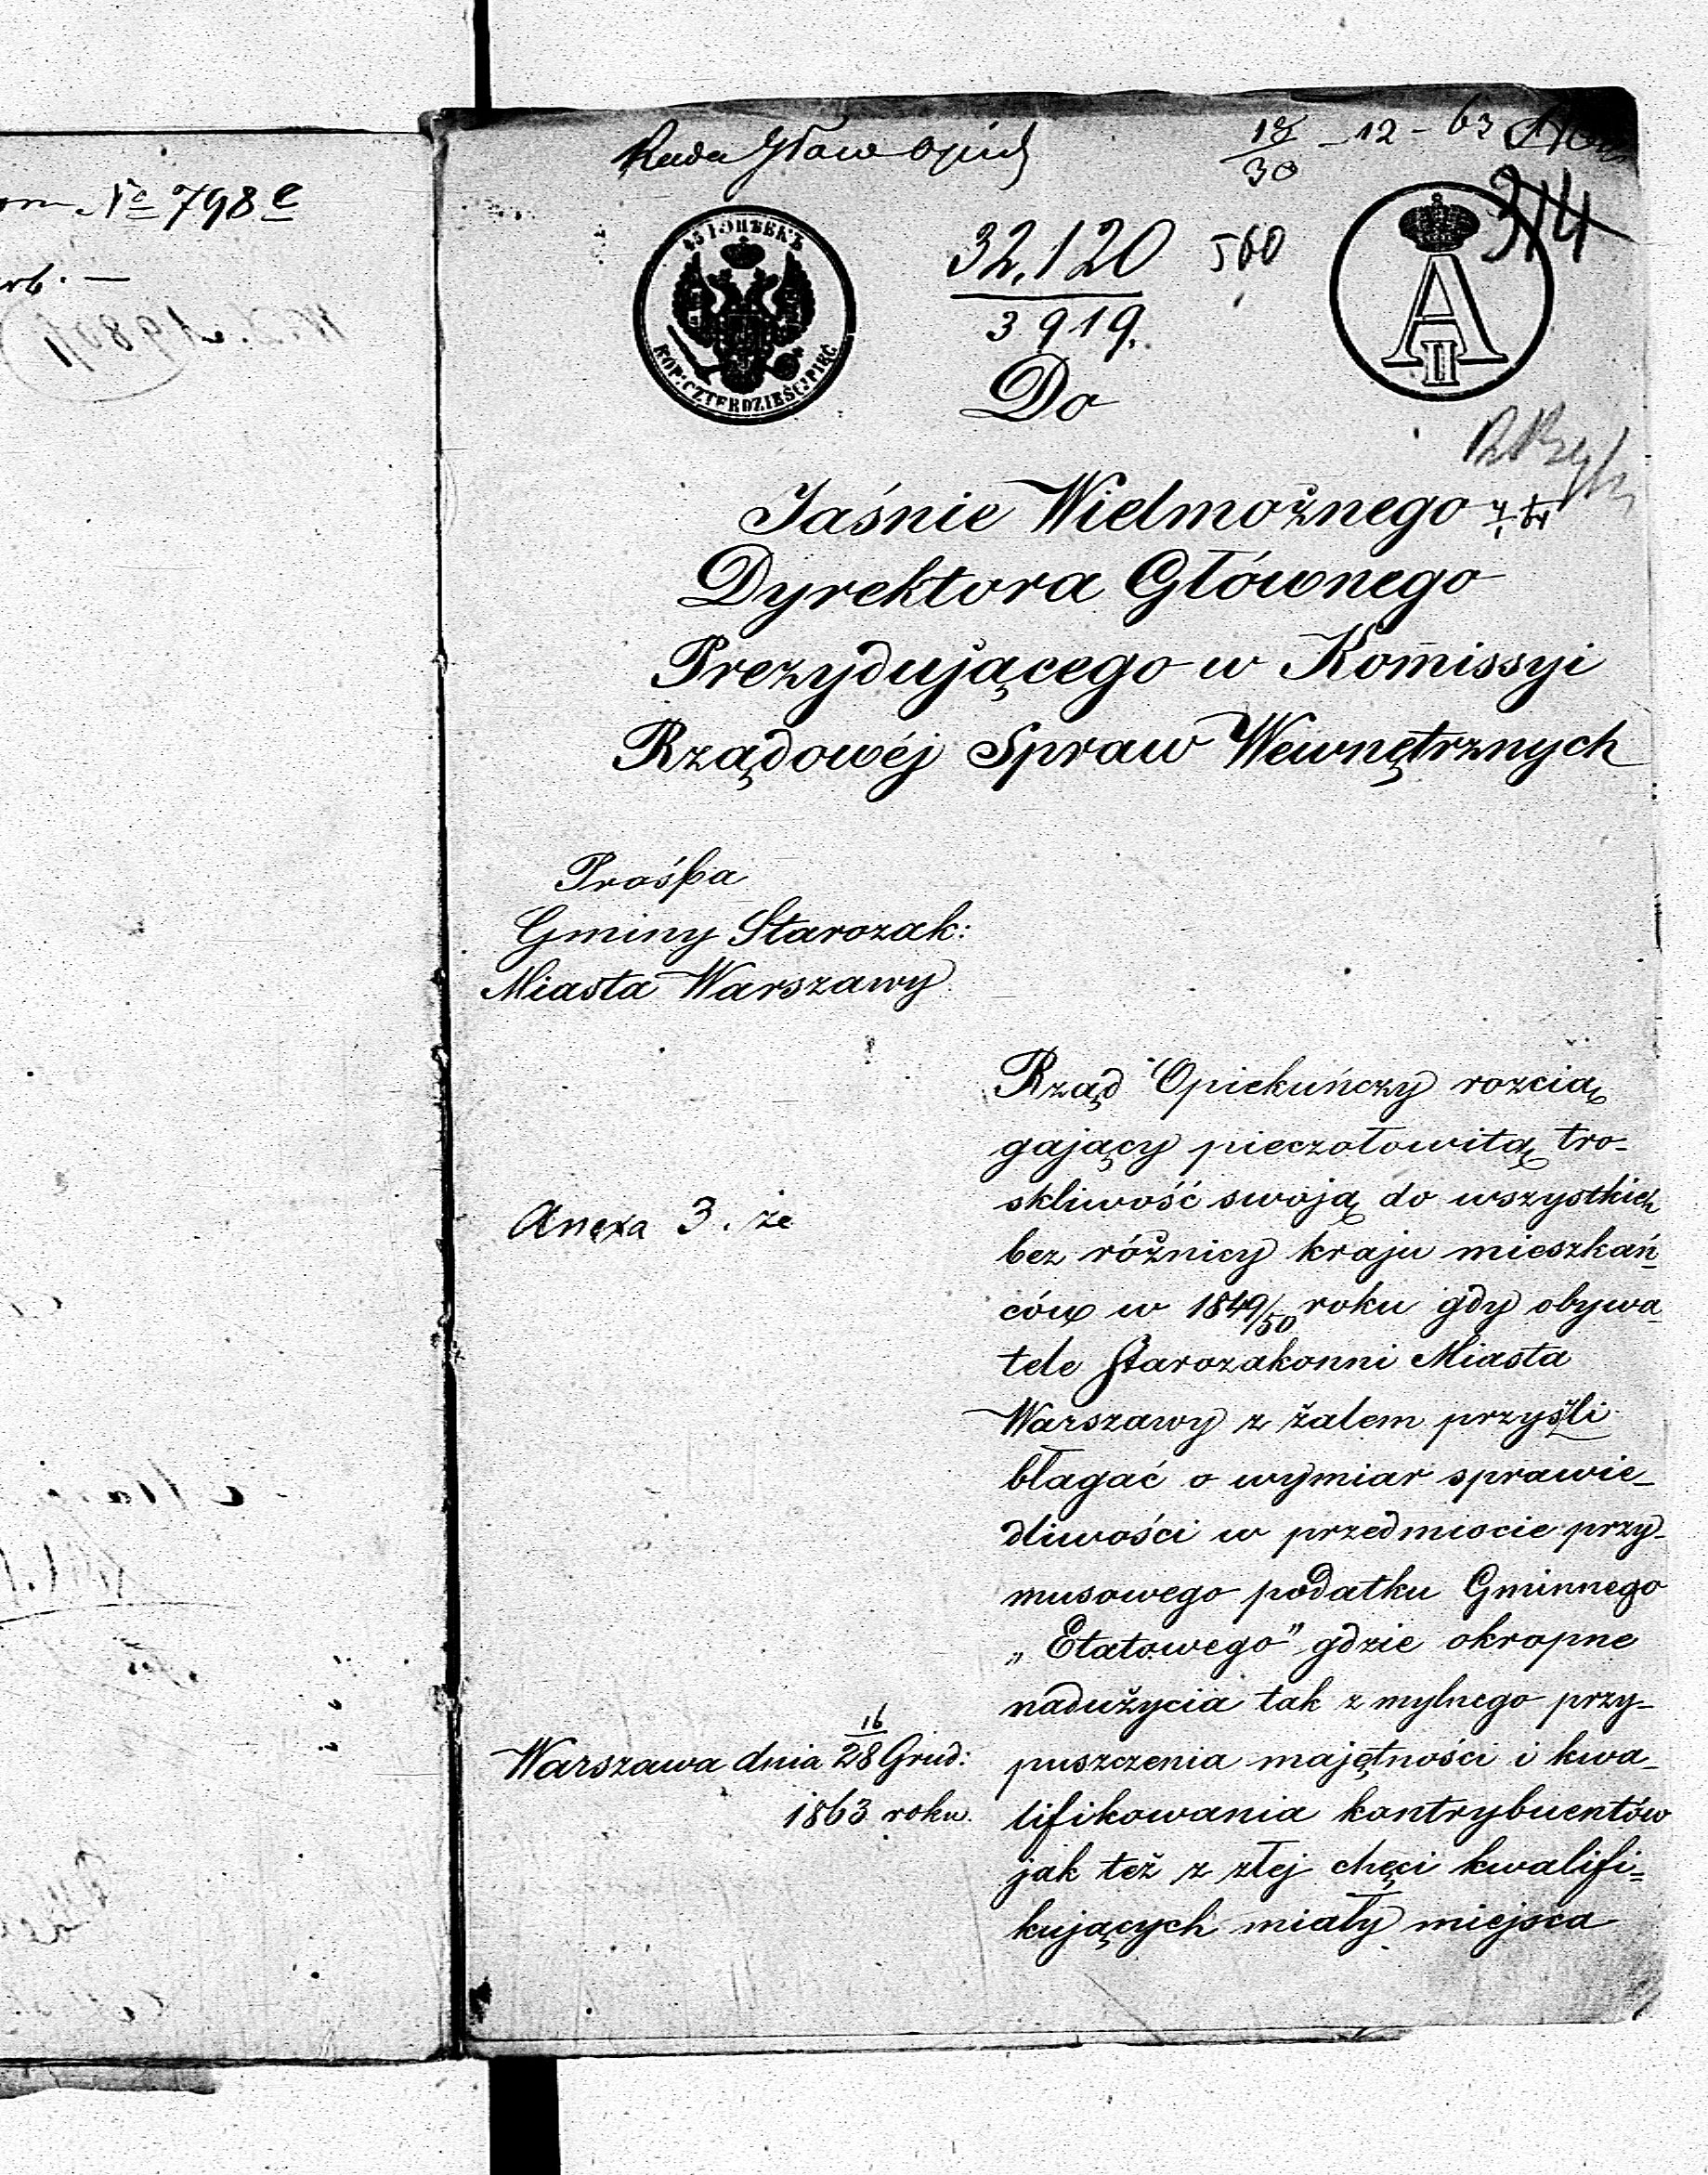 No 798 e
Rada Głów Opiek
18/30 - 12 - 63
314
45 КОПѢЕКЪ
KOP: CZTERDZIEŚCI PIĘĆ
32,120
3919.
560
A II
Do
Jaśnie Wielmożnego
Dyrektora Głównego
Prezydującego w Kom̃issyi
Rządowéj Spraw Wewnętrznych
Prośba
Gminy Starozak:
Miasta Warszawy
Anexa 3. że
Warszawa dnia 16/28 Grud:
1863 roku.
Rząd Opiekuńczy rozcią
gający pieczołowitą tro-
skliwość swoją do wszystkich
bez różnicy kraju mieszkań-
ców w 1849/50 roku gdy obywa-
tele Starozakonni Miasta
Warszawy z żalem przyśli
błagać o wymiar sprawie-
dliwości w przedmiocie przy-
musowego podatku Gminnego
„Etatowego" gdzie okropne
nadużycia tak z mylnego przy-
puszczenia majętności i kwa-
lifikowania kontrybuentów
jak też z złej chęci kwalifi-
kujących miały miejsca